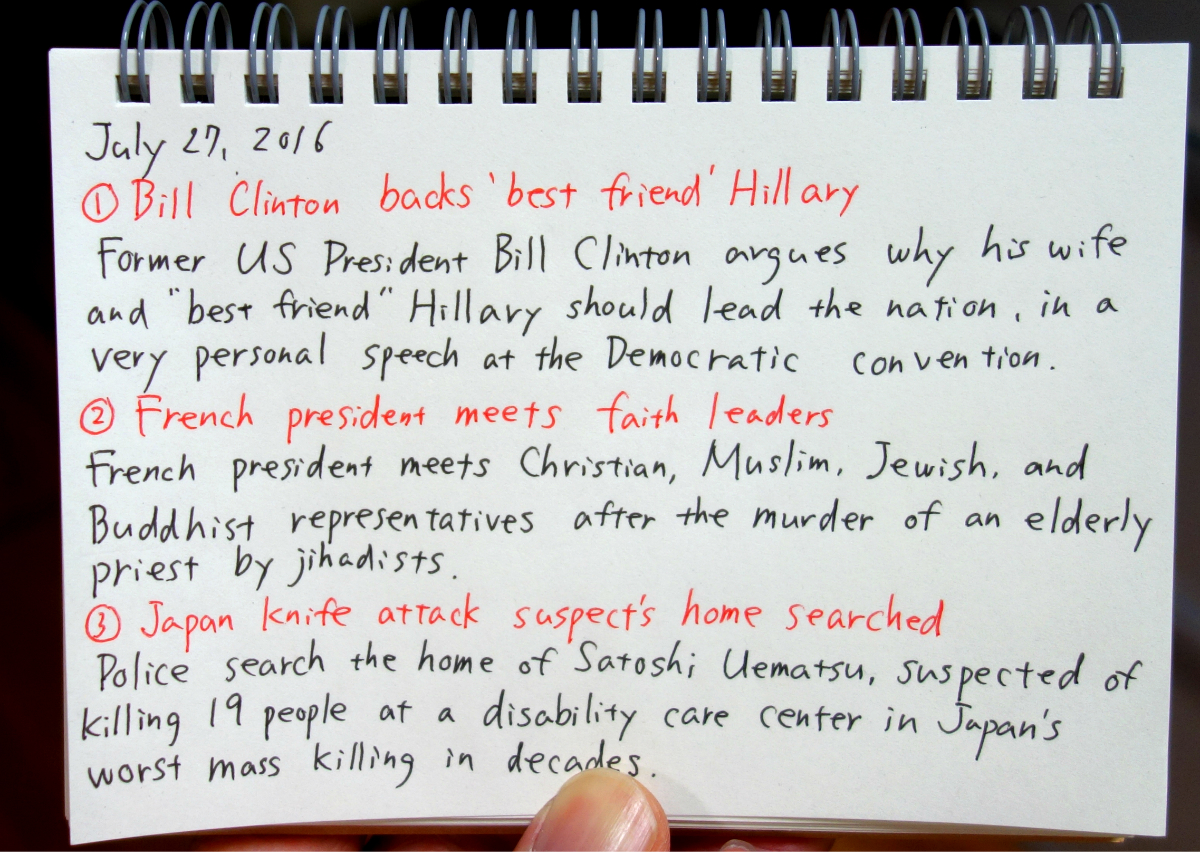 July 27, 2016
① Bill Clinton backs 'best friend' Hillary
Former US President Bill Clinton argues why his wife
and "best friend" Hillary should lead the nation, in a
very personal speech at the Democratic convention.
② French president meets faith leaders
French president meets Christian, Muslim, Jewish, and
Buddhist representatives after the murder of an elderly
priest by jihadists.
③ Japan knife attack suspect's home searched
Police search the home of Satoshi Uematsu, suspected of
killing 19 people at a disability care center in Japan's
worst mass killing in decades.